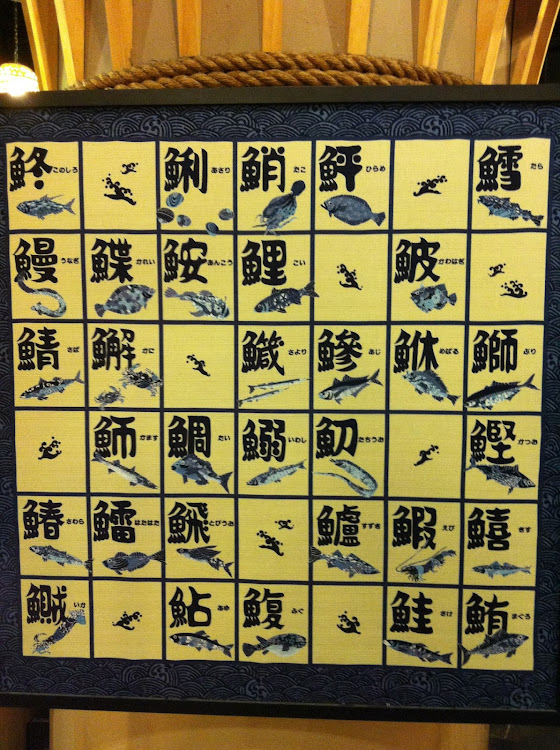 鮗 このしろ
鯏 あさり
鮹 たこ
鮃 ひらめ
鱈 たら
鰻 うなぎ
鰈 かれい
鮟 あんこう
鯉 こい
鮍 かわはぎ
鯖 さば
䲒 かに
さより
鰺 あじ
鮴 めばる
鰤 ぶり
魳 かます
鯛 たい
鰯 いわし
魛 たちうお
鰹 かつお
鰆 さわら
鱩 はたはた
とびうお
鱸 すずき
鰕 えび
鱚 きす
鱡 いか
鮎 あゆ
鰒 ふぐ
鮭 さけ
鮪 まぐろ